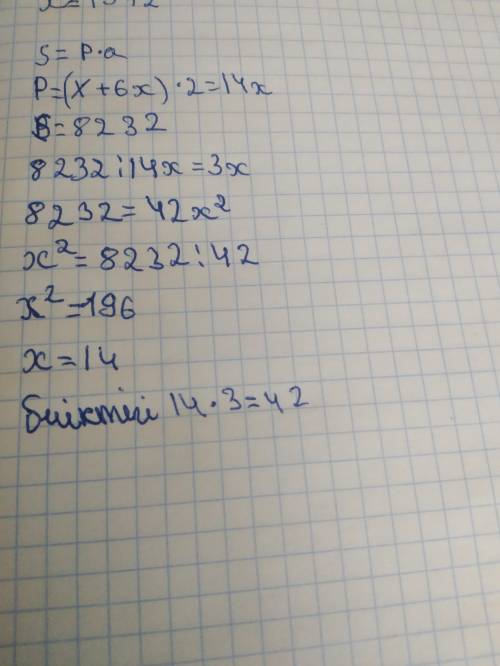 S = P·a
P=(x+6x)·2=14x
S=8232
8232:14x=3x
8232=42x²
x²=8232:42
x²=196
x=14
биіктігі 14·3=42